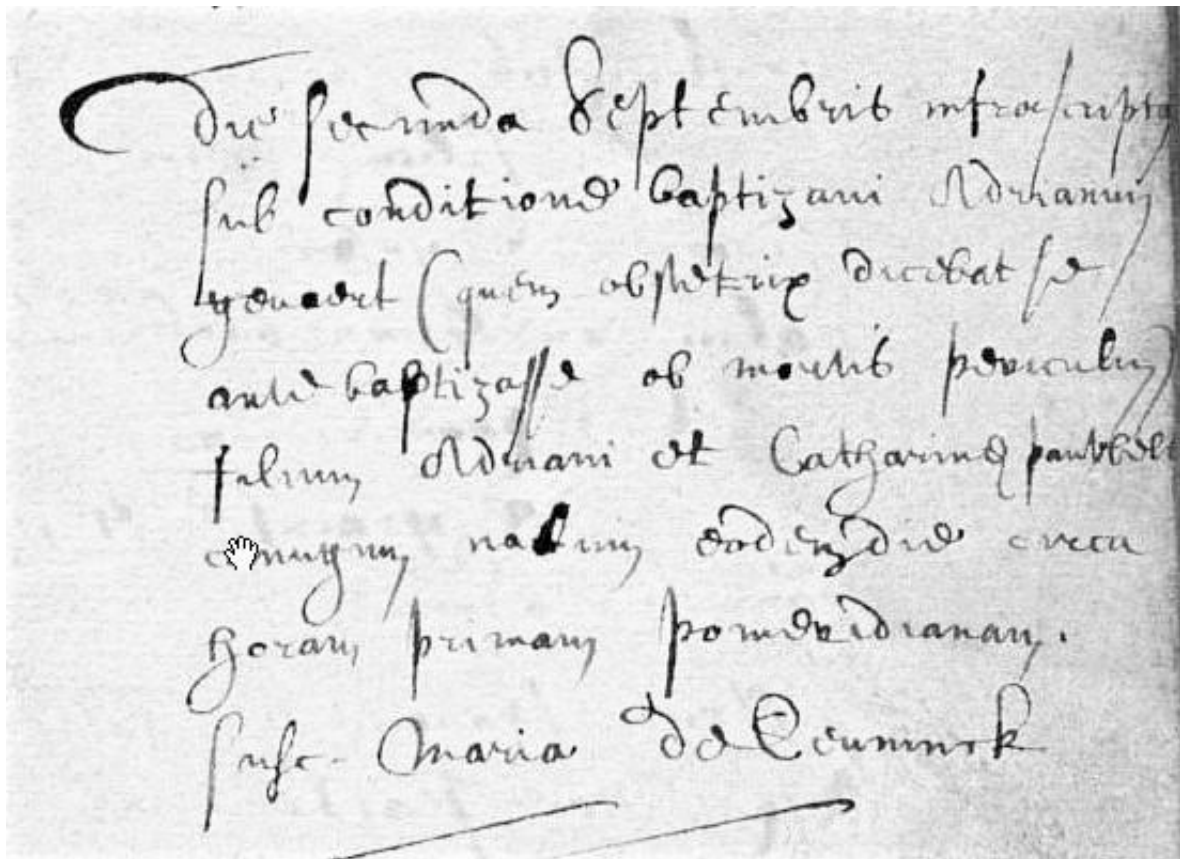 die secunda Septembris infrascriptus
sub conditione baptizavi Adrianum
gevaert (quem obstetrix dicebat se
ante baptizasse ob mortis periculum)
filium Adriani et Catharinę
coniugum natum eodem die circa
horam primam pomeridianam.
susc. Maria de Ceuninck